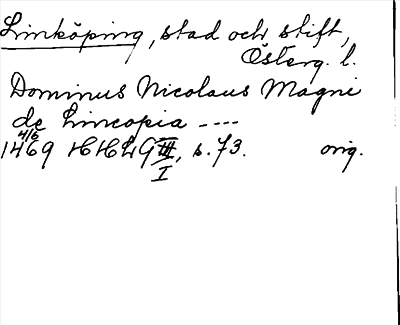 Linköping, stad och stift,
Österg. l.
Dominus Nicolaus Magni
de Lincopia ----
4/6
1469 HHLG III, s. 73. orig.
I